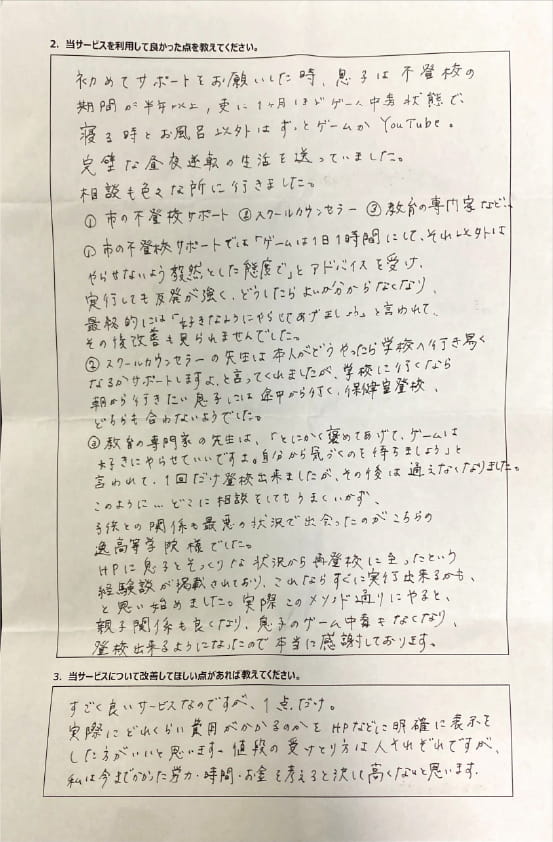 2. 当サービスを利用して良かった点を教えてください。
初めてサポートをお願いした時、息子は不登校の
期間が半年以上、更に1ヶ月ほどゲーム中毒状態で、
寝る時とお風呂以外はずっとゲームかYouTube。
完璧な昼夜逆転の生活を送っていました。
相談も色々な所に行きました。
① 市の不登校サポート ② スクールカウンセラー ③ 教育の専門家など、
① 市の不登校サポートでは「ゲームは1日1時間にして、それ以外は
やらせないよう毅然とした態度で」とアドバイスを受け、
実行しても反発が強く、どうしたらよいか分からなくなり、
最終的には「好きなようにやらせてあげましょう」と言われて、
その後改善も見られませんでした。
② スクールカウンセラーの先生は本人がどうやったら学校へ行き易く
なるかサポートしますよ、と言ってくれましたが、学校に行くなら
朝から行きたい息子には途中から行く、保健室登校、
どちらも合わないようでした。
③ 教育の専門家の先生は、「とにかく褒めてあげて、ゲームは
好きにやらせていいですよ。自分から気づくのを待ちましょう」と
言われて、1回だけ登校出来ましたが、その後は通えなくなりました。
このように…どこに相談をしてもうまくいかず、
子供との関係も最悪の状況で出会ったのがこちらの
逸高等学院様でした。
HPに息子とそっくりな状況から再登校に至ったという
経験談が掲載されており、これならすぐに実行出来るかも、
と思い始めました。実際このメソッド通りにやると、
親子関係も良くなり、息子のゲーム中毒もなくなり、
登校出来るようになったので本当に感謝しております。
3. 当サービスについて改善してほしい点があれば教えてください。
すごく良いサービスなのですが、1点だけ。
実際にどれくらい費用がかかるのかをHPなどに明確に表示を
した方がいいと思います。値段の受けとり方は人それぞれですが、
私は今までかかった労力・時間・お金を考えると決して高くないと思います.